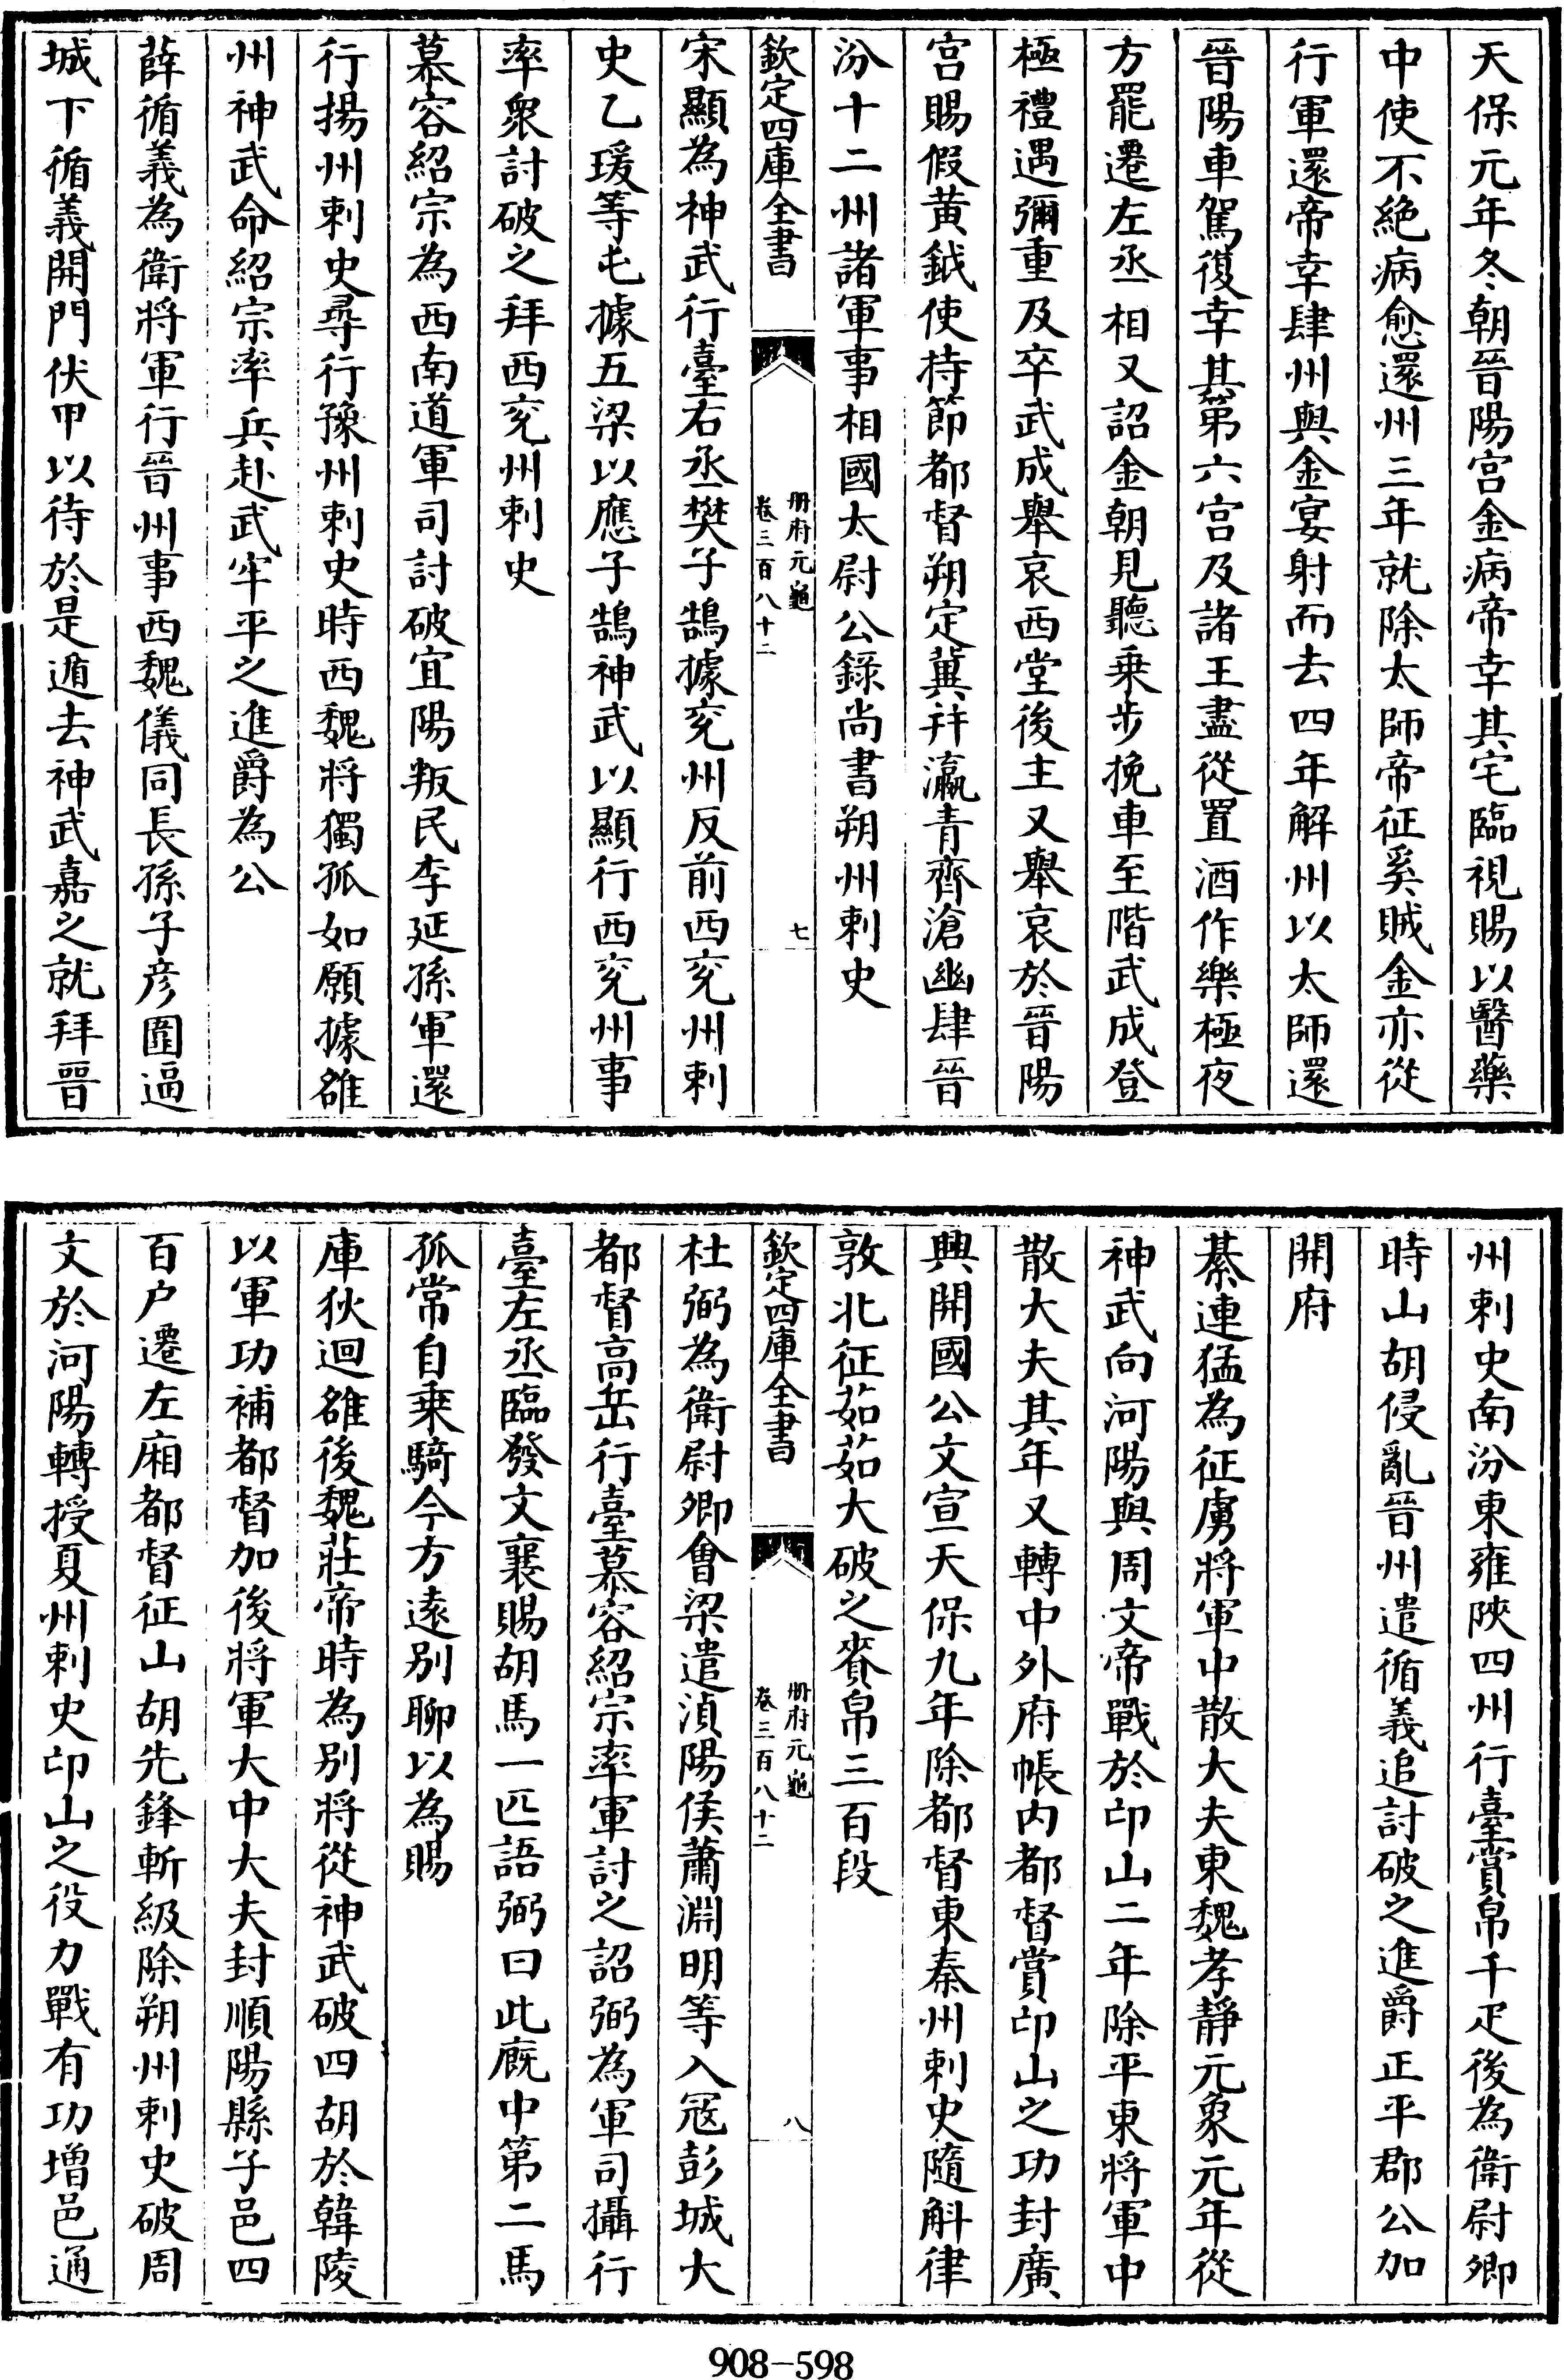 天保元年冬朝晉陽宮金病帝幸其宅臨視賜以醫藥
中使不絕病愈還州三年就除太師帝征奚賊金亦從
行軍還帝幸肆州與金宴射而去四年解州以太師還
晉陽車駕復幸其第六宮及諸王盡從置酒作樂極夜
方罷遷左丞相又詔金朝見聽乗步挽車至階武成登
極禮遇彌重及卒武成舉哀西堂後主又舉哀於晉陽
宮賜假黃鉞使持節都督朔定冀幷瀛青齊滄幽肆晉
汾十二州諸軍事相國太尉公錄尚書朔州刺史
欽定四庫全書
冊府元龜
卷三百八十二
七
宋顯為神武行臺右丞樊子鵠據兗州反前西兗州刺
史乙瑗等屯據五梁以應子鵠神武以顯行西兗州事
率衆討破之拜西兗州刺史
慕容紹宗為西南道軍司討破宜陽叛民李延孫軍還
行揚州刺史尋行豫州刺史時西魏將獨孤如願據雒
州神武命紹宗率兵赴武牢平之進爵為公
薛循義為衛將軍行晉州事西魏儀同長孫子彥圍逼
城下循義開門伏甲以待於是遁去神武嘉之就拜晉
州刺史南汾東雍陝四州行臺賞帛千疋後為衛尉卿
時山胡侵亂晉州遣循義追討破之進爵正平郡公加
開府
綦連猛為征虜將軍中散大夫東魏孝靜元象元年從
神武向河陽與周文帝戰於邙山二年除平東將軍中
散大夫其年又轉中外府帳内都督賞邙山之功封廣
興開國公文宣天保九年除都督東秦州刺史隨斛律
敦北征茹茹大破之賚帛三百段
欽定四庫全書
冊府元龜
卷三百八十二
八
杜弼為衛尉卿會梁遣湞陽侯蕭淵明等入冦彭城大
都督高岳行臺慕容紹宗率軍討之詔弼為軍司攝行
臺左丞臨發文襄賜胡馬一匹語弼曰此廐中第二馬
孤常自乗騎今方遠别聊以為賜
庫狄迴雒後魏莊帝時為别將從神武破四胡於韓陵
以軍功補都督加後將軍大中大夫封順陽縣子邑四
百户遷左廂都督征山胡先鋒斬級除朔州刺史破周
文於河陽轉授夏州刺史邙山之役力戰有功增邑通
908-598